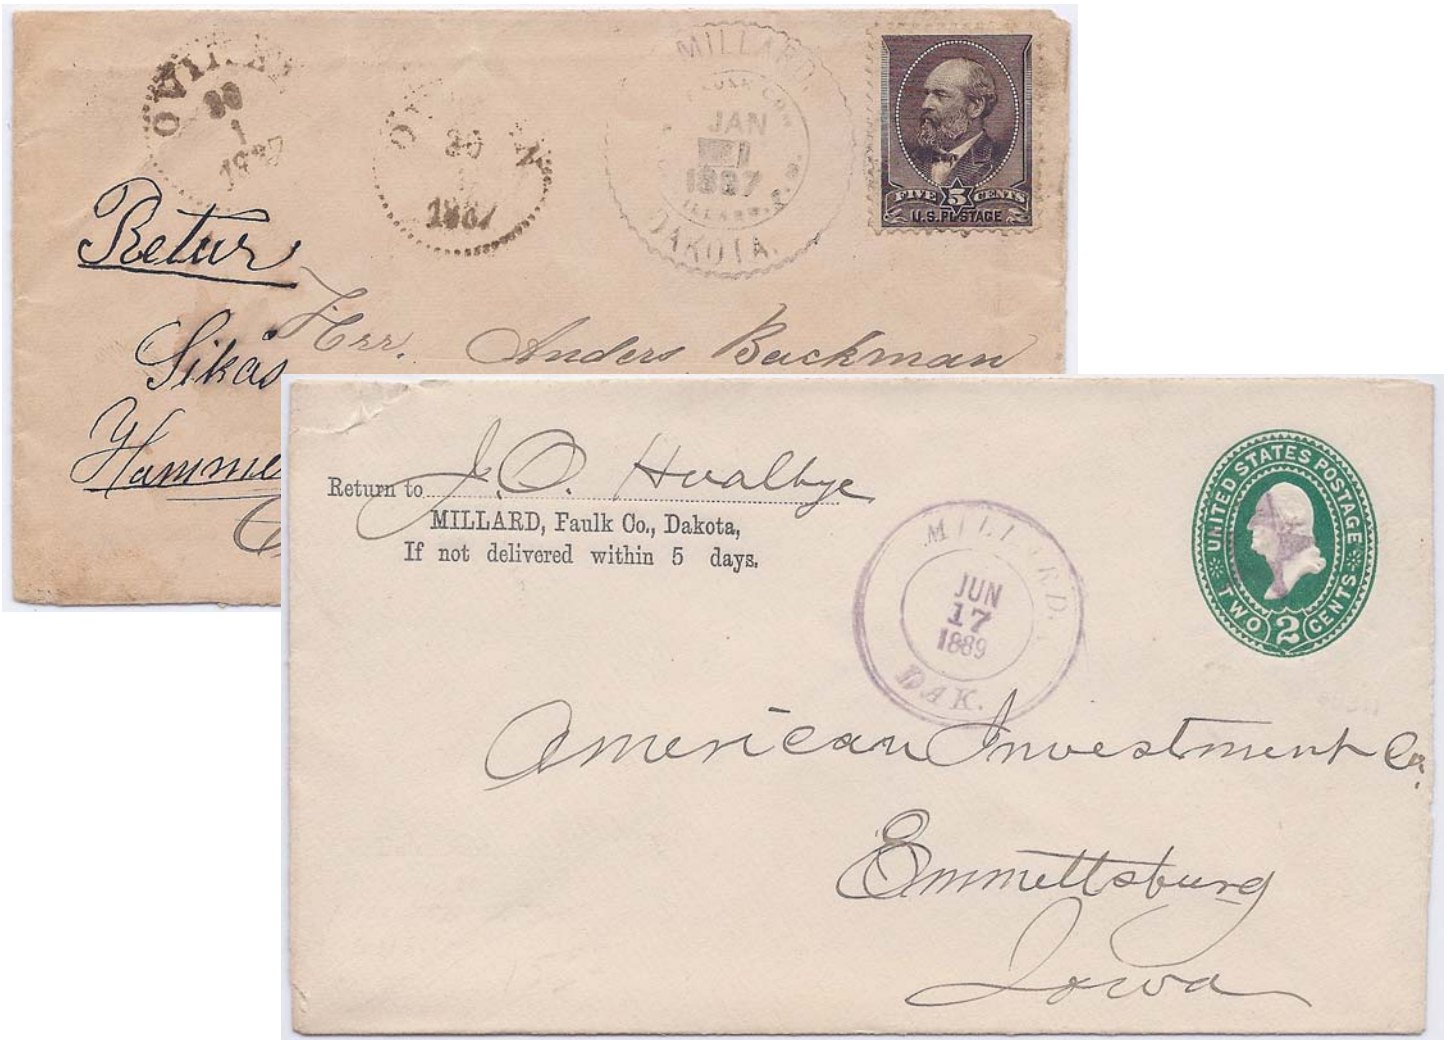 OVIKEN
30
1
1887
OVIKEN
30
1
1887
MILLARD,
FAULK CO.,
JAN
1
1887
MILLARD, P.O.
DAKOTA.
FIVE 5 CENTS
U.S. POSTAGE
Retur
Herr. Anders Backman
Sikås
Hamme
Return to J. O. Hvalbye
MILLARD, Faulk Co., Dakota,
If not delivered within 5 days.
MILLARD,
JUN
17
1889
DAK.
UNITED STATES POSTAGE
TWO 2 CENTS
American Investment Co.
Emmettsburg
Iowa